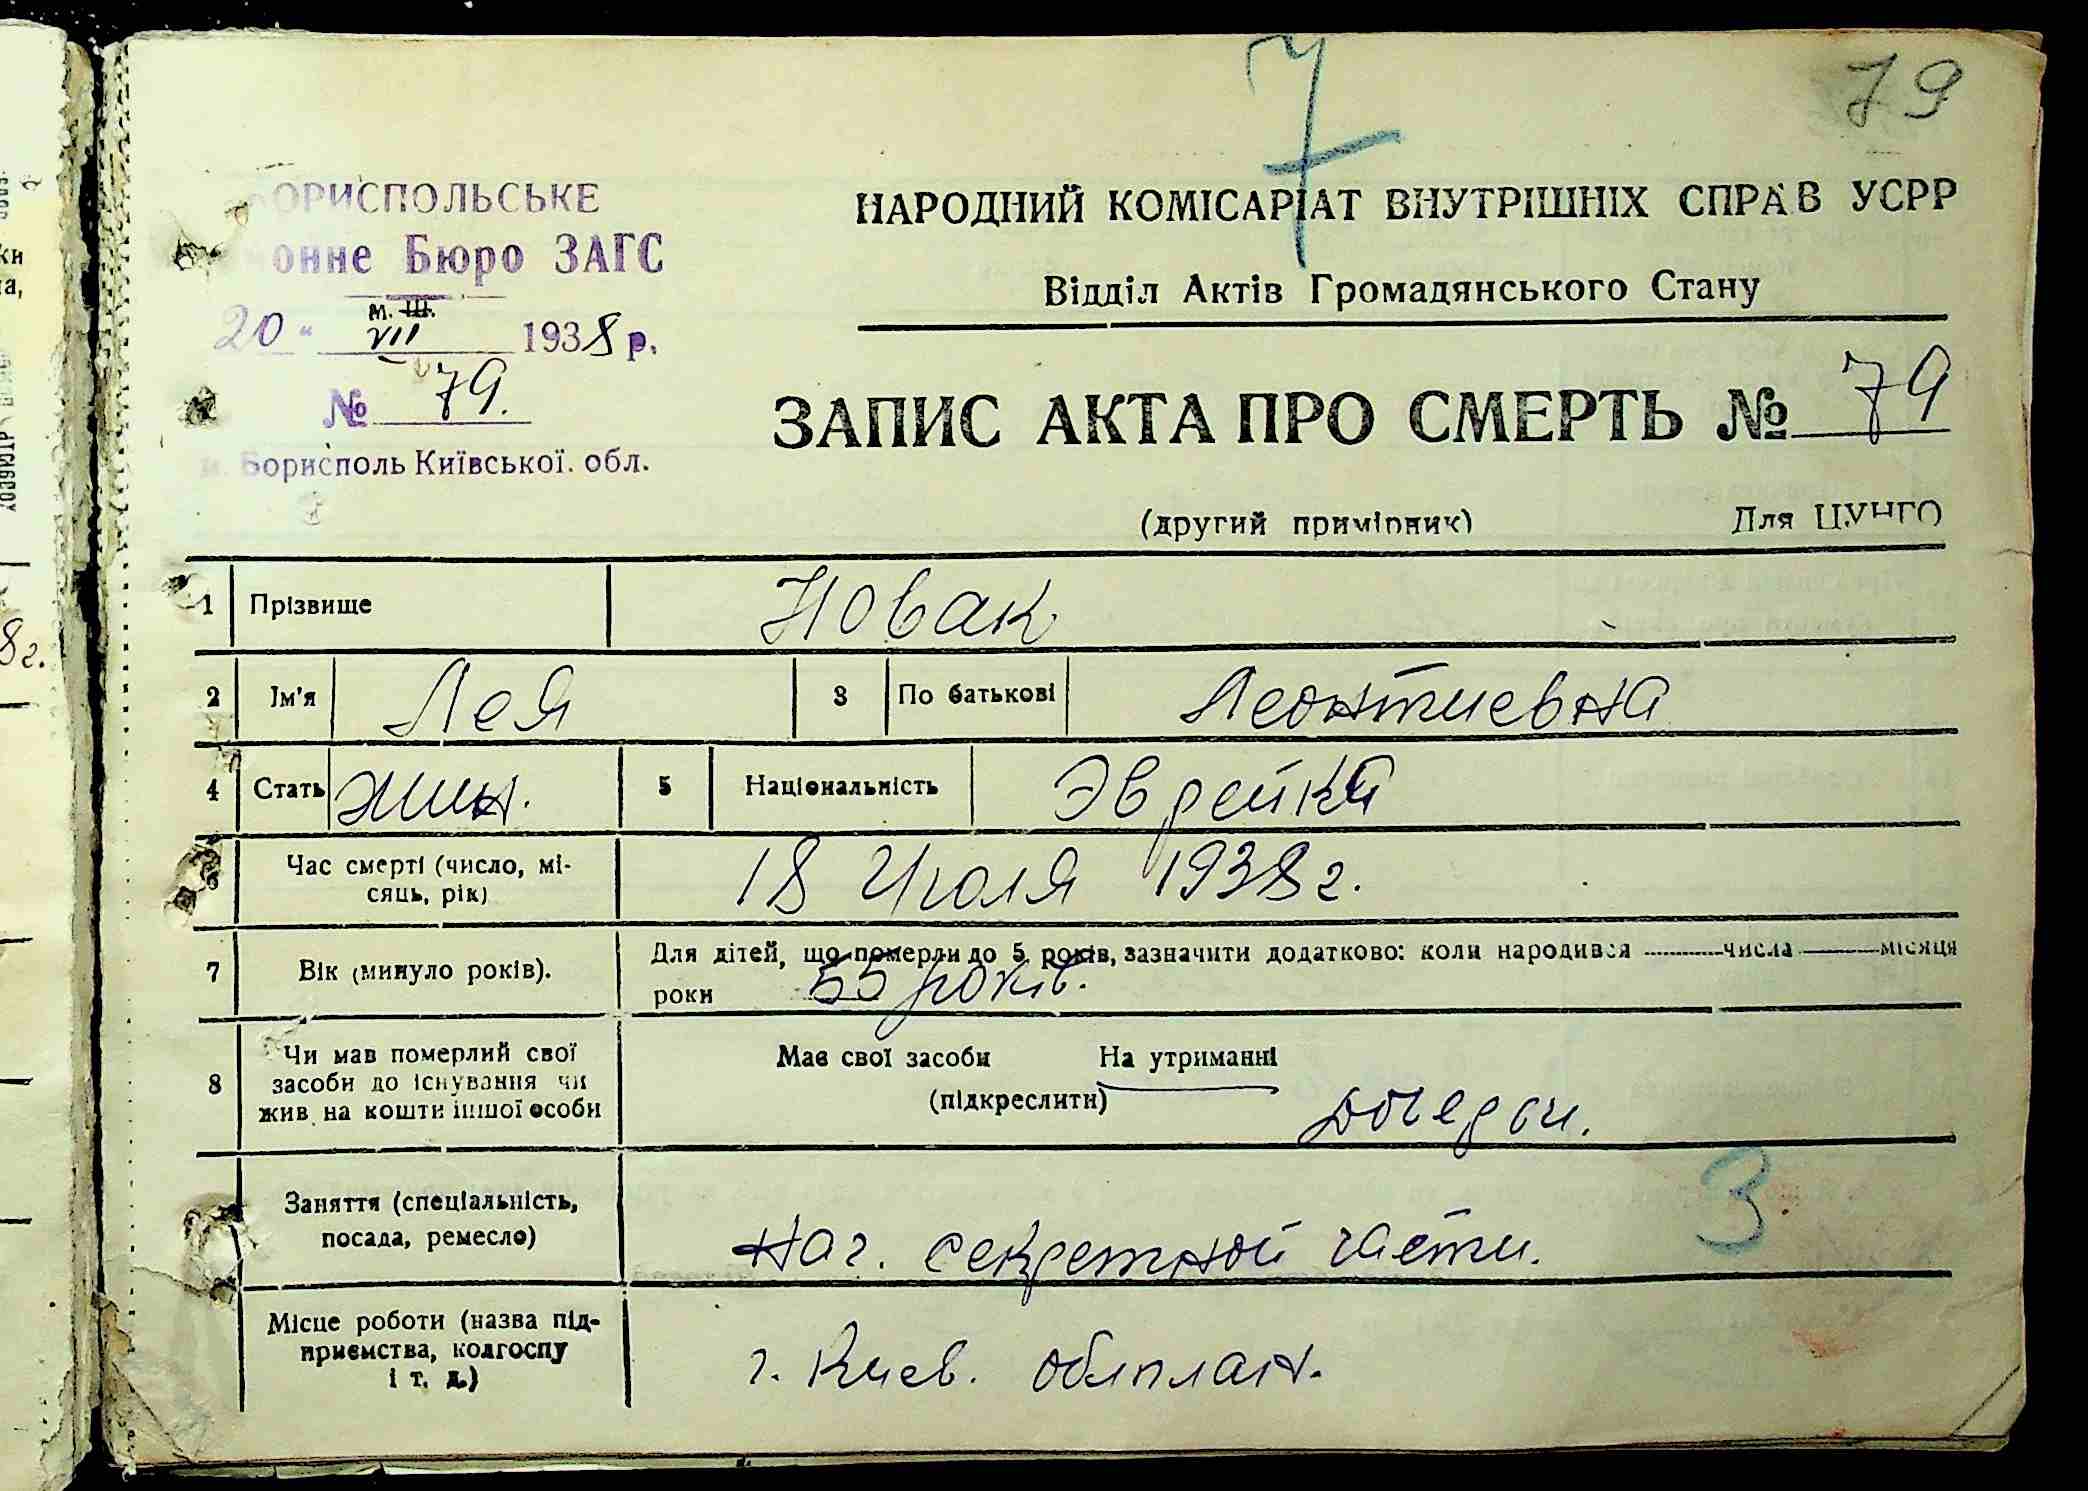 7
79
БОРИСПОЛЬСЬКЕ
НАРОДНИЙ КОМІСАРІАТ ВНУТРІШНІХ СПРАВ УСРР
Бюро ЗАГС
Відділ Актів Громадянського Стану
20 " м. Ш. VII 1938 р.
№ 79.
ЗАПИС АКТА ПРО СМЕРТЬ № 79
м. Борисполь Київської. обл.
(другий примірник) Для ЦУНГО
1 Прізвище Новак
2 Ім'я Лея 3 По батькові Леонтиевна
4 Стать жин. 5 Національність Эврейка
6 Час смерті (число, мі-
сяць, рік) 18 Июля 1938 г.
7 Вік (минуло років). Для дітей, що померли до 5 років, зазначити додатково: коли народився числа місяця
роки 55 років.
8 Чи мав померлий свої
засоби до існування чи
жив на кошти іншої особи
Має свої засоби На утриманні
(підкреслити)
дочери.
Заняття (спеціальність,
посада, ремесло) нач. секретной части.
3
Місце роботи (назва під-
приємства, колгоспу
і т. д.) г. Киев. облплан.